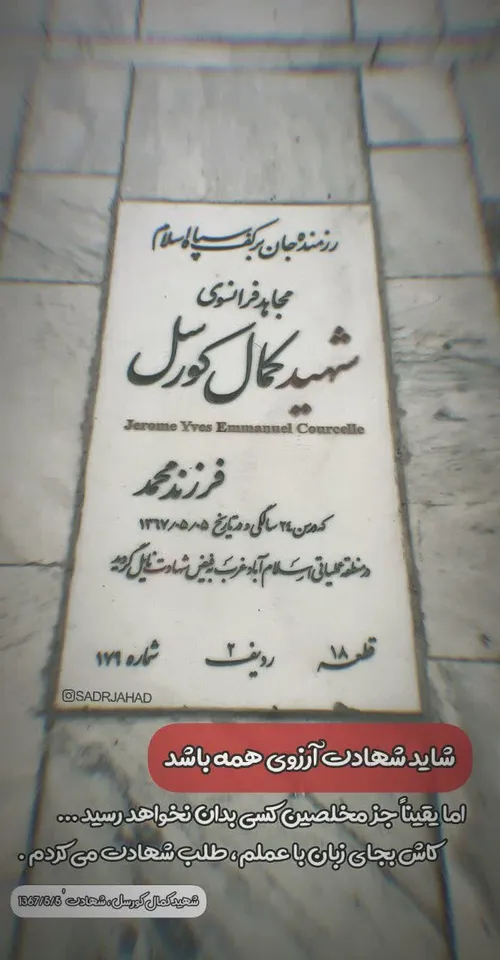 رزمنده جان برکف سپاه اسلام
مجاهد فرانسوی
شهید کمال کورسل
Jerome Yves Emmanuel Courcelle
فرزند محمد
که در سن ۲۴ سالگی و در تاریخ ۱۳۶۷/۰۵/۰۵
در منطقه عملیاتی اسلام آباد غرب به فیض شهادت نایل گردید
قطعه ۱۸ ردیف ۲ شماره ۱۷۹
SADRJAHAD
شاید شهادت آرزوی همه باشد
اما یقیناً جز مخلصین کسی بدان نخواهد رسید ...
کاش بجای زبان با عملم ، طلب شهادت می کردم .
شهید کمال کورسل ، شهادت 1367/5/5